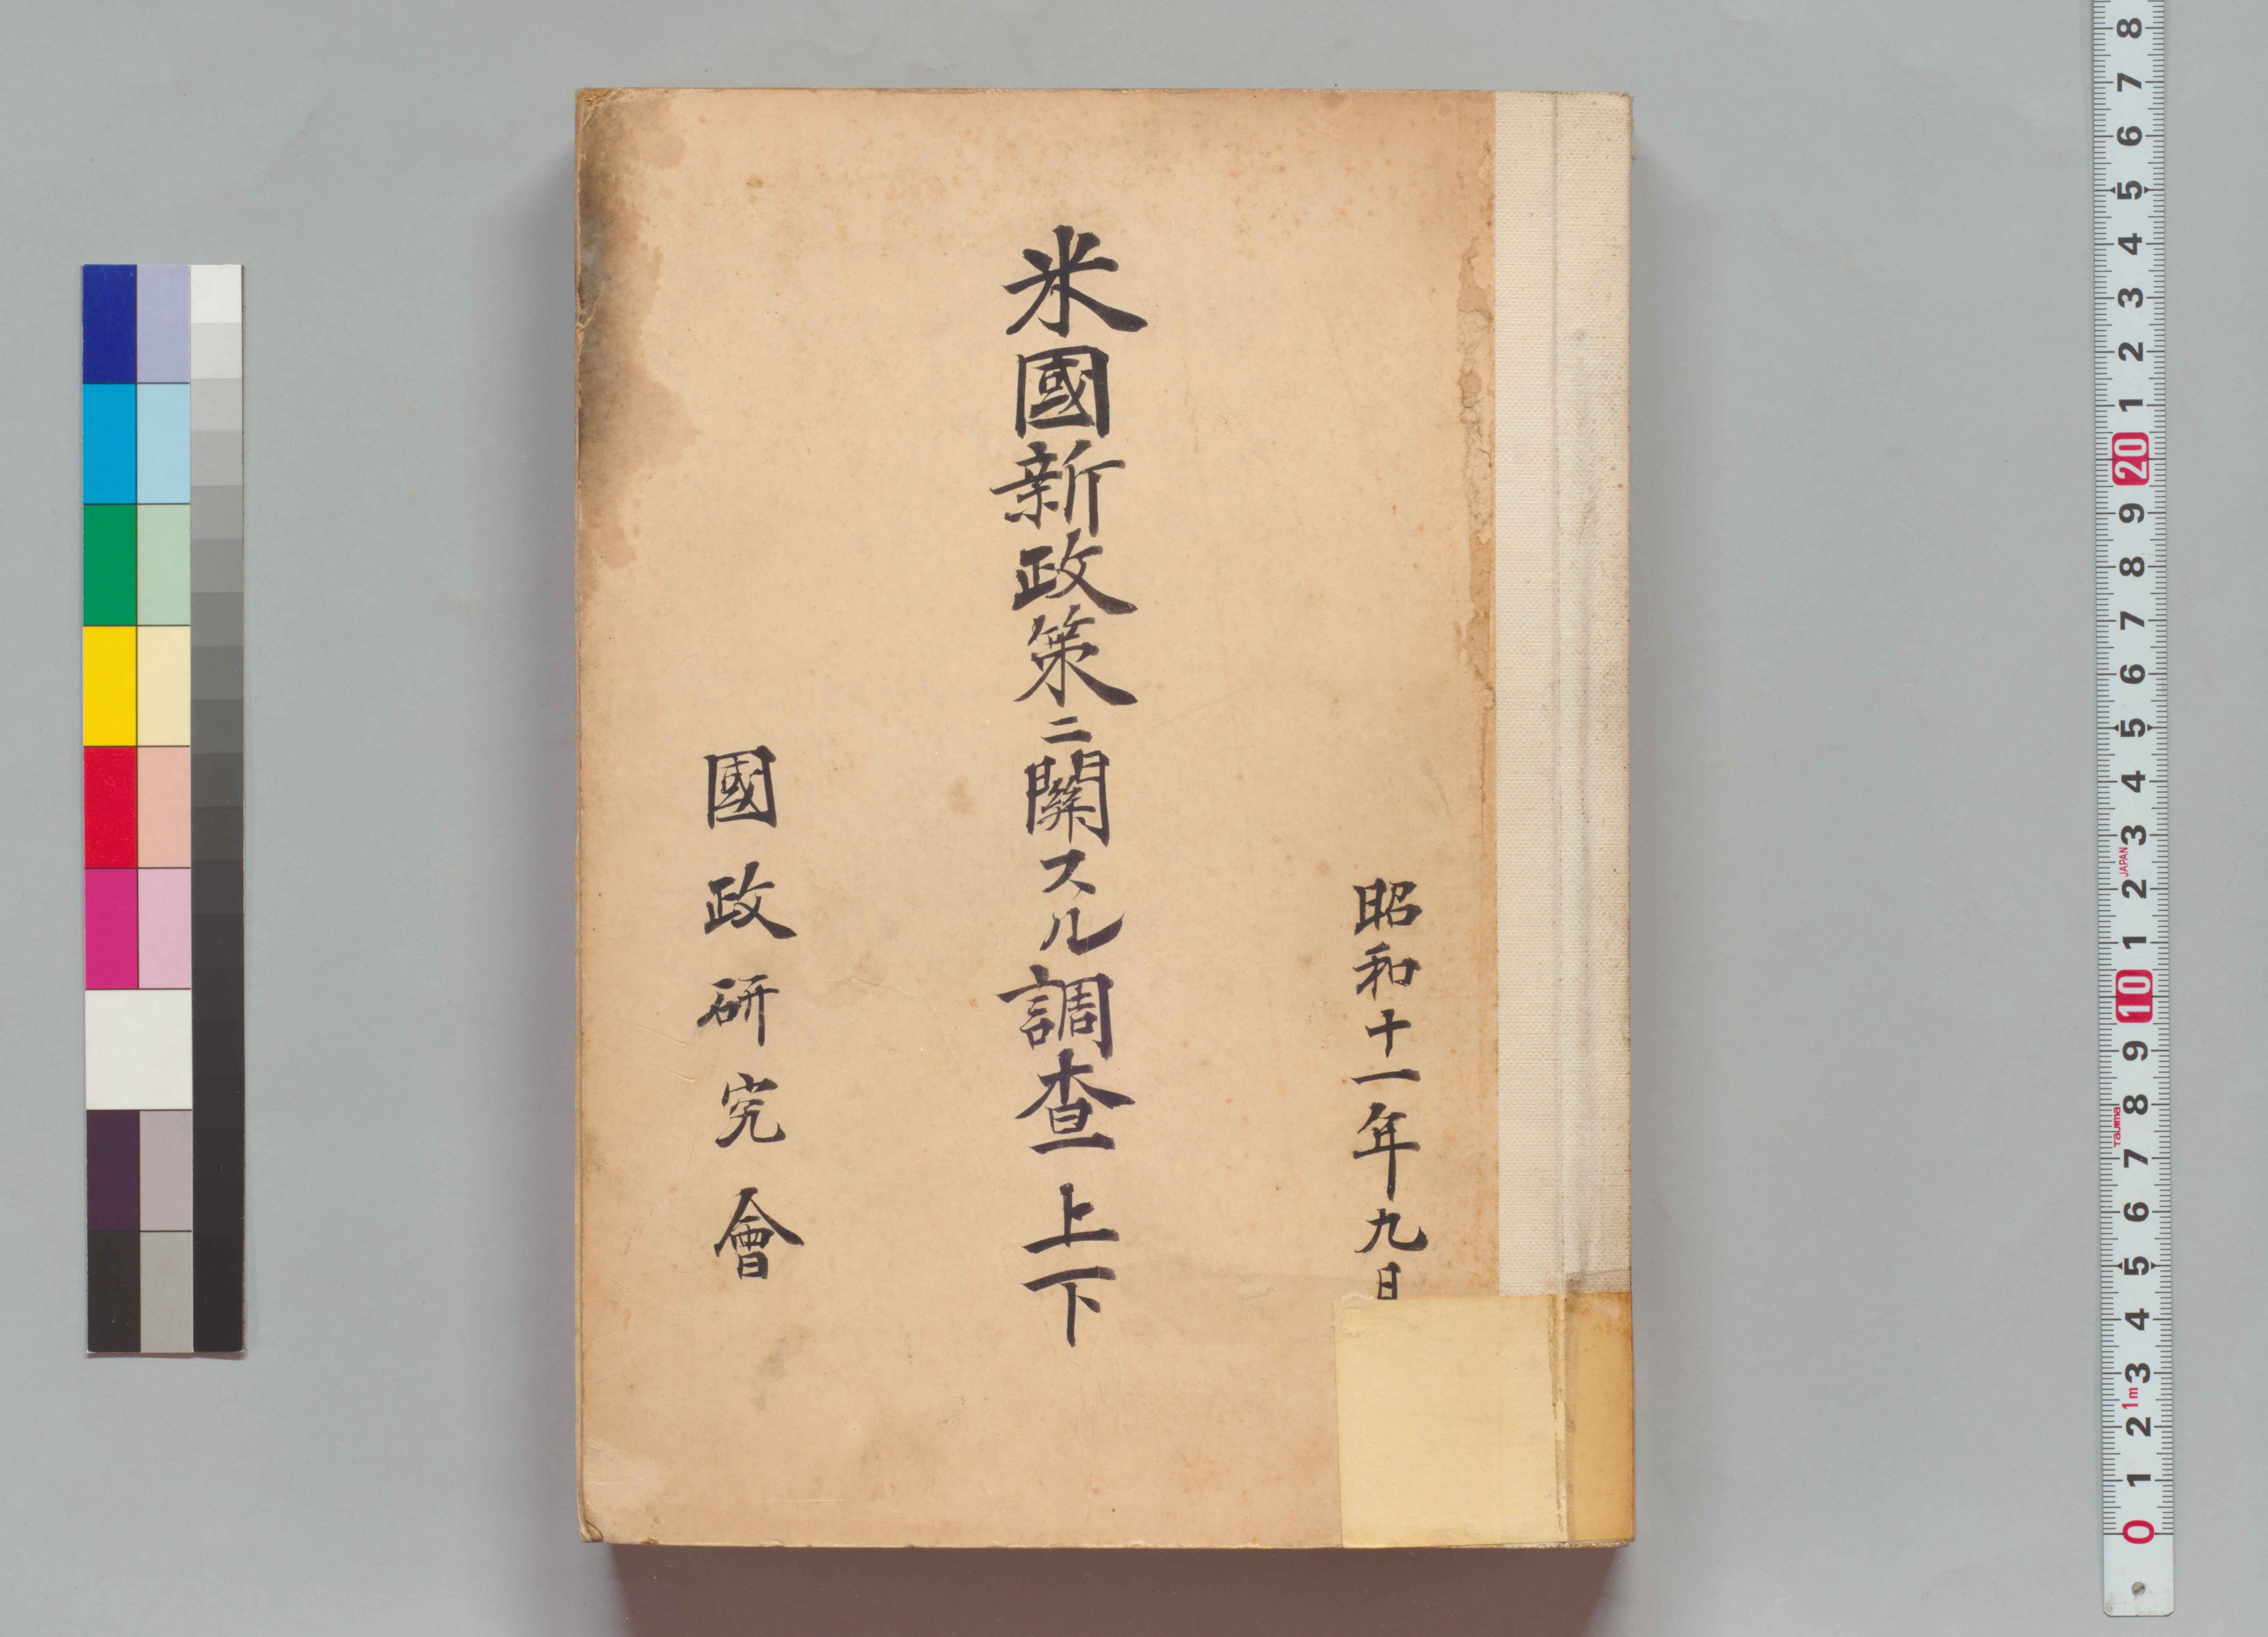 昭和十一年九月
米國新政策ニ關スル調査上下
國政研究會
8 7 6 5 4 3 2 1 20 9 8 7 6 5 4 3 2 1 10 9 8 7 6 5 4 3 2 1 0
JAPAN
Tajima
1m